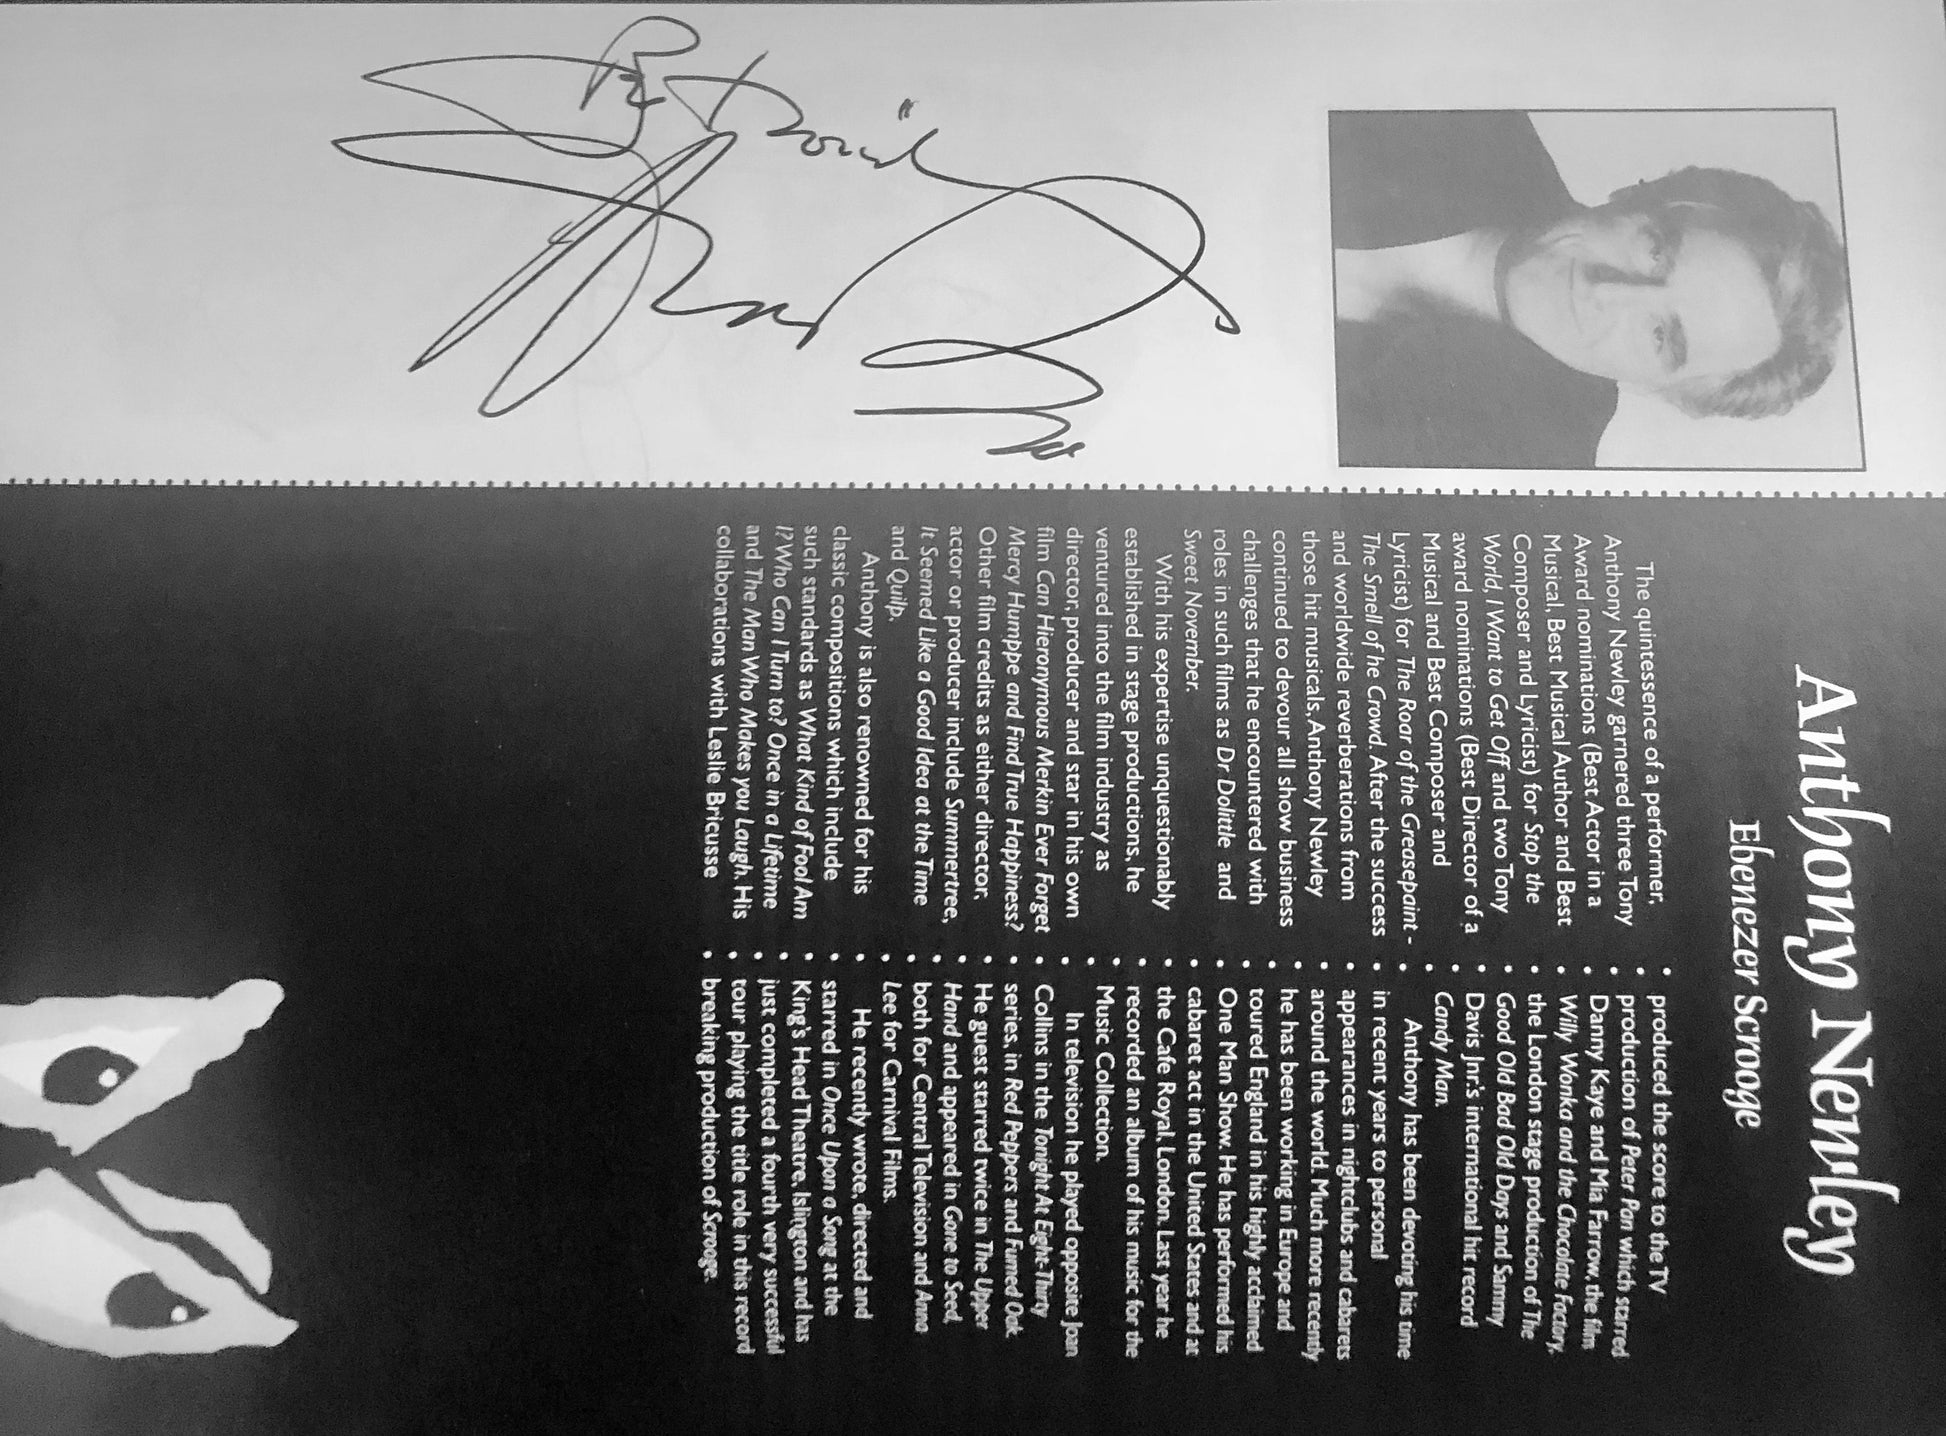 Anthony Newley
Ebenezer Scrooge
The quintessence of a performer,
Anthony Newley garnered three Tony
Award nominations (Best Actor in a
Musical, Best Musical Author and Best
Composer and Lyricist) for Stop the
World, I Want to Get Off and two Tony
award nominations (Best Director of a
Musical and Best Composer and
Lyricist) for The Roar of the Greasepaint -
The Smell of he Crowd. After the success
and worldwide reverberations from
those hit musicals, Anthony Newley
continued to devour all show business
challenges that he encountered with
roles in such films as Dr Dolittle and
Sweet November.
With his expertise unquestionably
established in stage productions, he
ventured into the film industry as
director, producer and star in his own
film Can Hieronymous Merkin Ever Forget
Mercy Humppe and Find True Happiness?
Other film credits as either director,
actor or producer include Summertree,
It Seemed Like a Good Idea at the Time
and Quilp.
Anthony is also renowned for his
classic compositions which include
such standards as What Kind of Fool Am
I? Who Can I Turn to? Once in a Lifetime
and The Man Who Makes you Laugh. His
collaborations with Leslie Bricusse
produced the score to the TV
production of Peter Pan which starred
Danny Kaye and Mia Farrow, the film
Willy Wonka and the Chocolate Factory,
the London stage production of The
Good Old Bad Old Days and Sammy
Davis Jnr.'s international hit record
Candy Man.
Anthony has been devoting his time
in recent years to personal
appearances in nightclubs and cabarets
around the world. Much more recently
he has been working in Europe and
toured England in his highly acclaimed
One Man Show. He has performed his
cabaret act in the United States and at
the Cafe Royal, London. Last year he
recorded an album of his music for the
Music Collection.
In television he played opposite Joan
Collins in the Tonight At Eight-Thirty
series, in Red Peppers and Fumed Oak.
He guest starred twice in The Upper
Hand and appeared in Gone to Seed,
both for Central Television and Anna
Lee for Carnival Films.
He recently wrote, directed and
starred in Once Upon a Song at the
King's Head Theatre, Islington and has
just completed a fourth very successful
tour playing the title role in this record
breaking production of Scrooge.